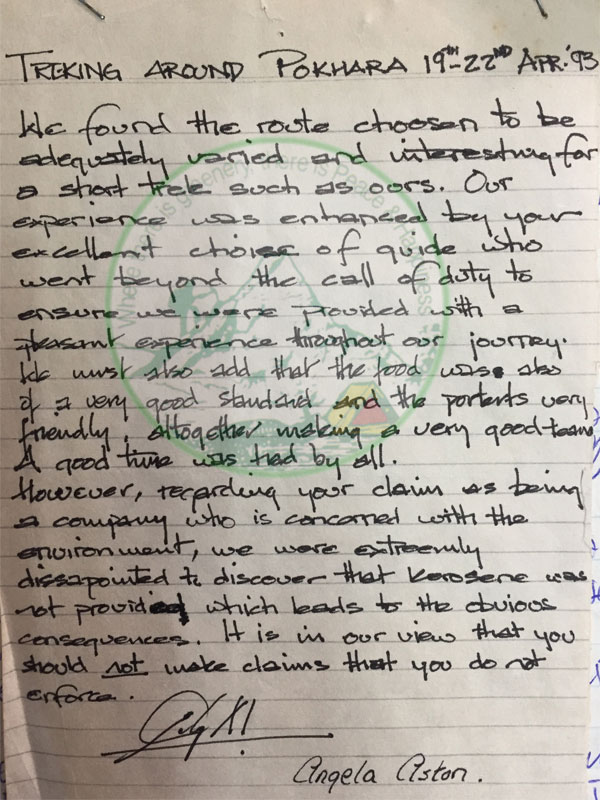 TREKING AROUND POKHARA 19TH-22ND APR.'93
We found the route choosen to be
adequately varied and interesting for
a short trek such as ours. Our
experience was enhanced by your
excellent choise of guide who
went beyond the call of duty to
ensure we were provided with a
pleasant experience throughout our journey.
We must also add that the food was also
of a very good standard and the portents very
friendly, altogether making a very good team
A good time was had by all.
However, regarding your claim as being
a company who is concerned with the
environment, we were extreemly
dissapointed to discover that Kerosene was
not provided which leads to the obvious
consequences. It is in our view that you
should not make claims that you do not
enforce.
Angela Aston.
Where there is greenery, there is Peace & Happiness